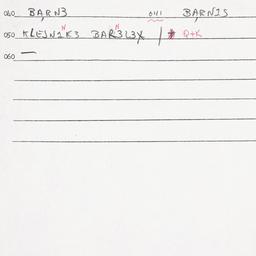 040 BARN3 041 BARNIS
050 KLEJN1K3 BAR3L3X / Q+K
060 —